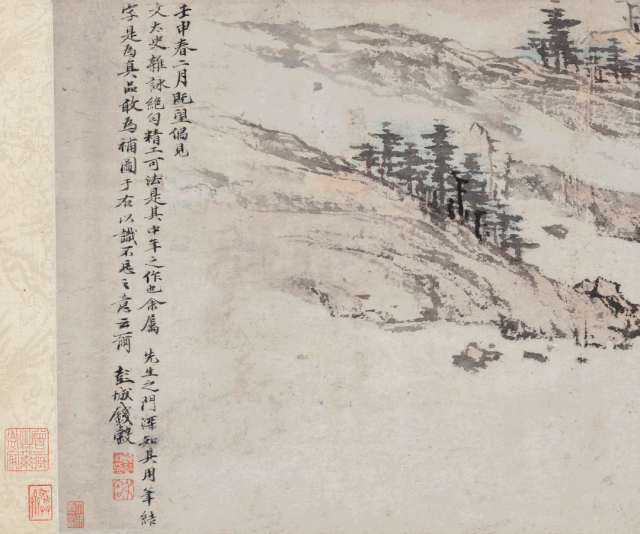 壬申春二月既望偶見
文太史雜詠絕句精工可法是其中年之作也余屬 先生之門深知其用筆結
字是為真品敢為補圖于右以識不忘之意云爾 彭城錢穀